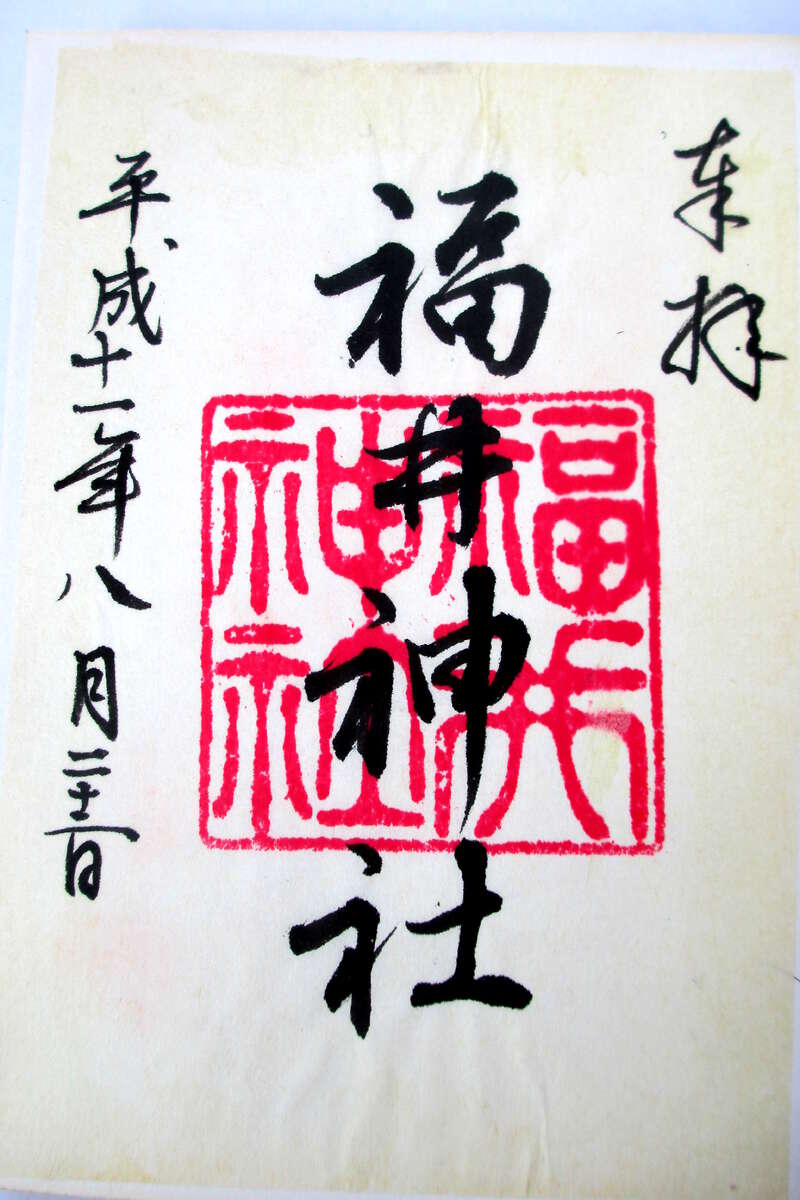 奉拝
福井神社
福井神社
平成十一年八月二十二日